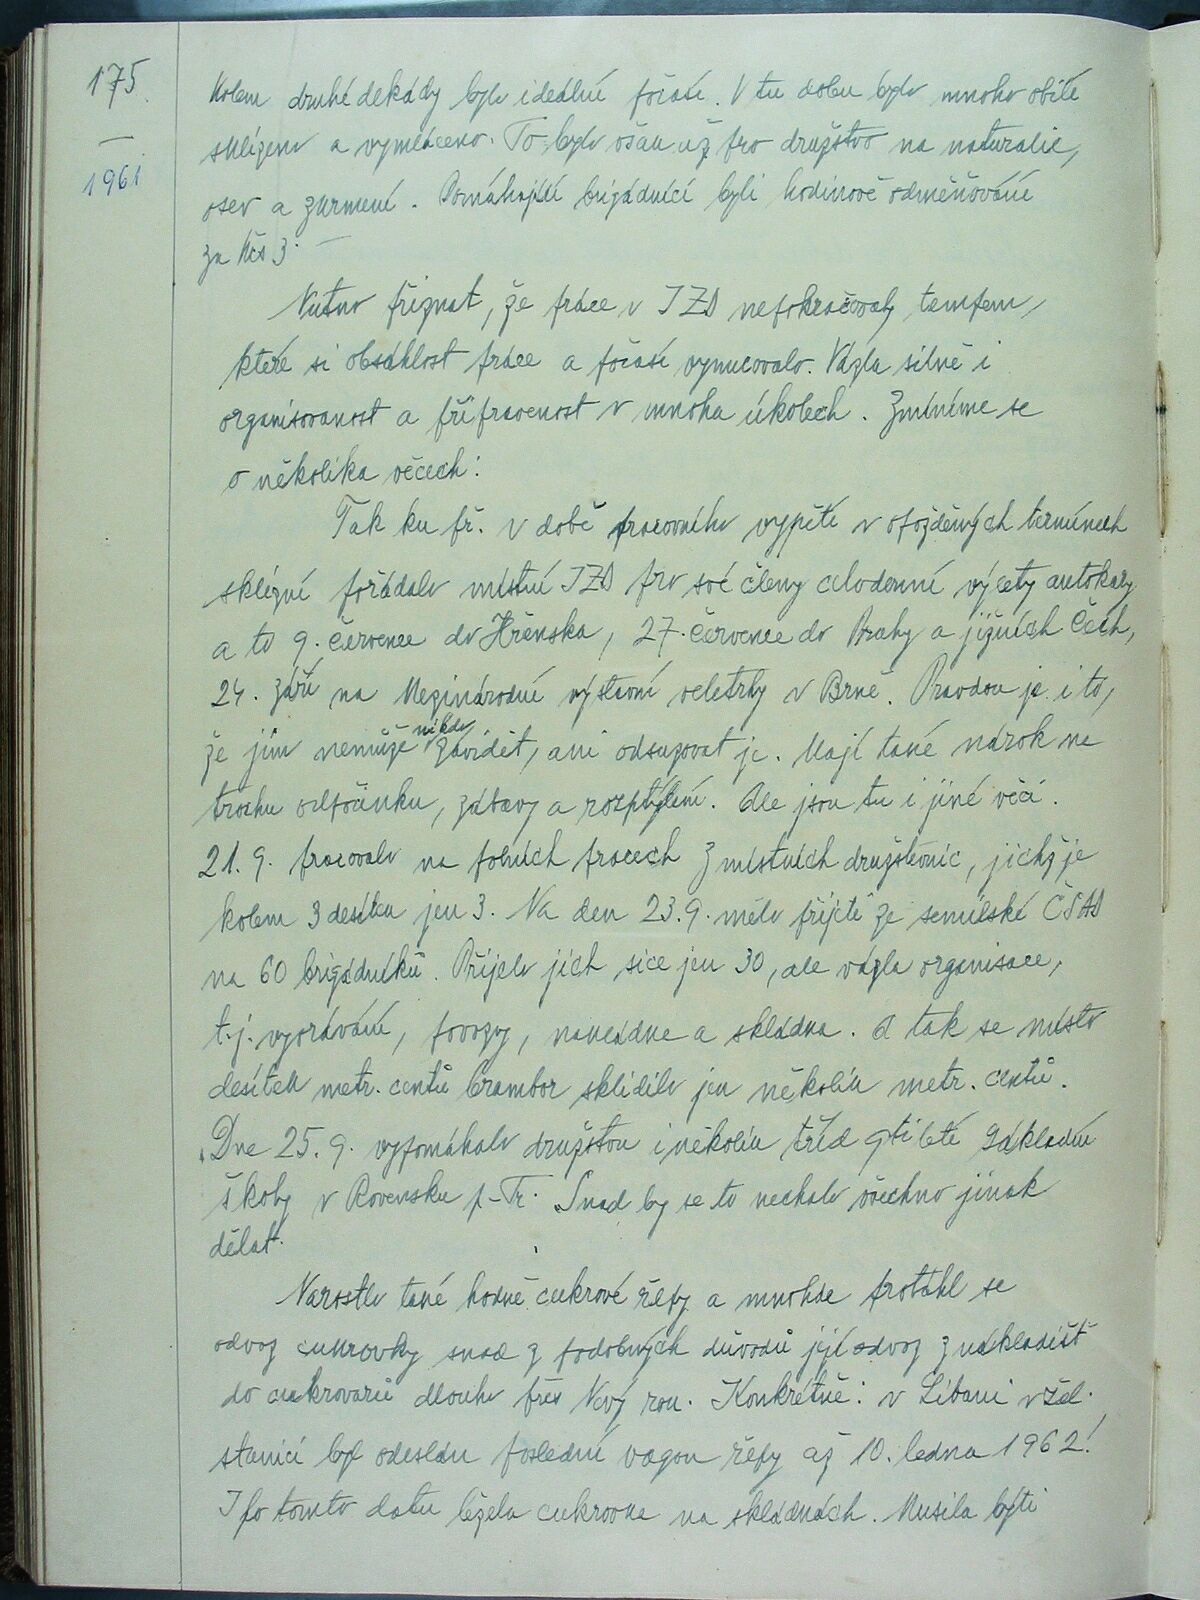 175
1961
Kolem druhé dekády bylo ideální počasí. V tu dobu bylo mnoho obilí
sklizeno a vymláceno. To bylo však už pro družstvo na naturalie,
osev a krmení. Pomáhající brigádníci byli hodinově odměňováni
za Kčs 3.—
Nutno přiznat, že práce v JZD nepokračovaly tempem,
které si obsáhlost práce a počasí vynucovalo. Vázla silně i
organisovanost a připravenost v mnoha úkolech. Zmíníme se
o několika věcech:
Tak ku př. v době pracovního vypětí v opožděných termínech
sklizní pořádalo místní JZD pro své členy celodenní výlety autokary
a to 9. července do Hřenska, 27. července do Prahy a jižních Čech,
24. září na Mezinárodní výstavní veletrhy v Brně. Pravdou je i to,
že jim nemůže nikdo závidět, ani odsuzovat je. Mají také nárok na
trochu odpočinku, zábavy a rozptýlení. Ale jsou tu i jiné věci.
21.9. pracovaly na polních pracech z místních družstevnic, jichž je
kolem 3 desítek jen 3. Na den 23.9. mělo přijeti ze semilské ČSAD
na 60 brigádníků. Přijelo jich sice jen 30, ale vázla organisace,
t.j. vyorávání, povozy, nakládka a skládka. A tak se místo
desítek metr. centů brambor sklidilo jen několik metr. centů.
Dne 25.9. vypomáhalo družstvu i několik tříd 9ti leté základní
školy v Rovensku p-Tr. Snad by se to nechalo všechno jinak
dělat.
Narostlo také hodně cukrové řepy a mnohde protáhl se
odvoz cukrovky snad z podobných důvodů její odvoz z nákladišť
do cukrovarů dlouho přes Nový rok. Konkrétně: v Libuni v žel.
stanici byl odeslán poslední vagon řepy až 10. ledna 1962!
I po tomto datu ležela cukrovka na skládkách. Musila býti